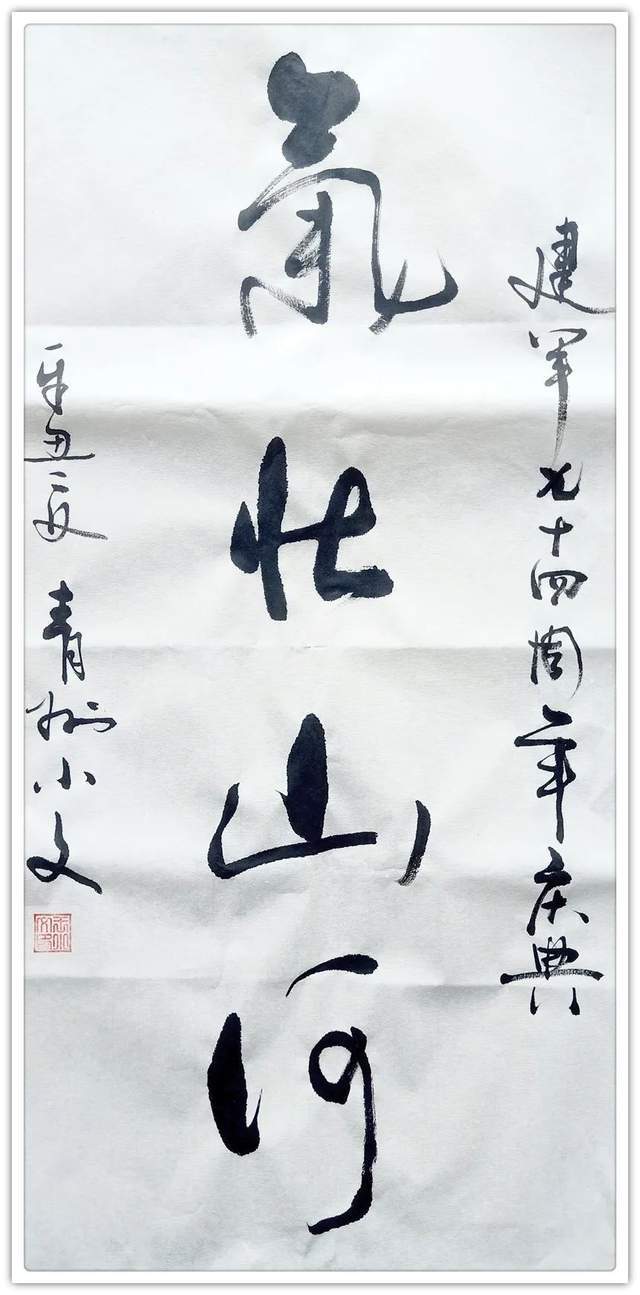 建军九十四周年庆典
氣壮山河
辛丑夏 青州小文